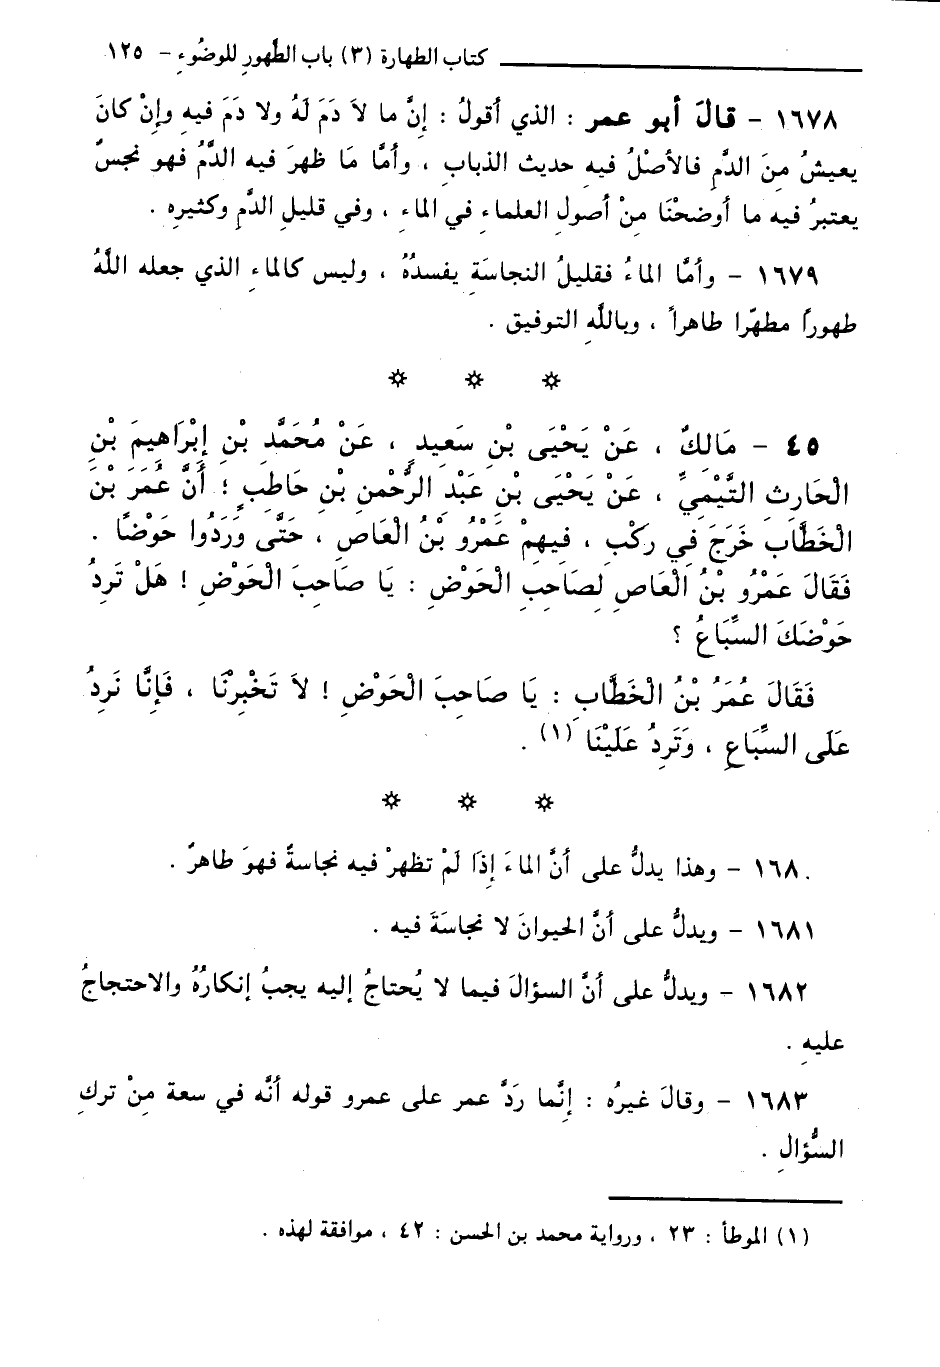 كتاب الطهارة (٣) باب الطَّهورِ للوضُوءِ – ١٢٥
١٦٧٨ – قالَ أبو عمر : الذي أقولُ : إنَّ ما لاَ دَمَ لَهُ ولا دَمَ فيهِ وإنْ كانَ
يعيشُ مِنَ الدَّمِ فالأصْلُ فيهِ حديث الذبابِ ، وأمَّا مَا ظهرَ فيه الدَّمُ فهو نجسٌ
يعتبرُ فيه ما أوضحْنَا مِنْ أصولِ العلماءِ في الماءِ ، وفي قليلِ الدَّمِ وكثيرِهِ .
١٦٧٩ – وأمَّا الماءُ فقليلُ النجاسَةِ يفسدُهُ ، وليس كالماءِ الذي جعله اللَّهُ
طهوراً مطهّرا طاهراً ، وباللَّهِ التوفيق .
٤٥ – مَالِكٌ ، عَنْ يَحْيَى بْنِ سَعِيدٍ ، عَنْ مُحَمَّدِ بْنِ إِبْرَاهِيمَ بْنِ
الْحَارِثِ التَّيْمِيِّ ، عَنْ يَحْيَى بْنِ عَبْدِ الرَّحْمنِ بْنِ حَاطِبٍ ؛ أَنَّ عُمَرَ بْنَ
الْخَطَّابِ خَرَجَ فِي رَكْبٍ ، فِيهِمْ عَمْرُو بْنُ الْعَاصِ ، حَتَّى وَرَدُوا حَوْضًا .
فَقَالَ عَمْرُو بْنُ الْعَاصِ لِصَاحِبِ الْحَوْضِ : يَا صَاحِبَ الْحَوْضِ ! هَلْ تَرِدُ
حَوْضَكَ السِّبَاعُ ؟
فَقَالَ عُمَرُ بْنُ الْخَطَّابِ : يَا صَاحِبَ الْحَوْضِ ! لاَ تَخْبِرْنَا ، فَإِنَّا نَرِدُ
عَلَى السِّبَاعِ ، وَتَرِدُ عَلَيْنَا (١) .
١٦٨٠ – وهذا يدلُّ على أنَّ الماءَ إِذَا لَمْ تظهرْ فيه نجاسةٌ فهوَ طاهرٌ .
١٦٨١ – ويدلُّ على أنَّ الحيوانَ لا نجاسَةَ فيه .
١٦٨٢ – ويدلُّ على أنَّ السؤالَ فيما لا يُحتاجُ إليه يجبُ إنكارُهُ والاحتجاجُ
عليهِ .
١٦٨٣ – وقالَ غيرُه : إنَّما رَدَّ عمر على عمرو قوله أنَّه في سعة مِنْ تركِ
السُّؤالِ .
(١) الموطأ : ٢٣ ، ورواية محمد بن الحسن : ٤٢ ، موافقة لهذه .